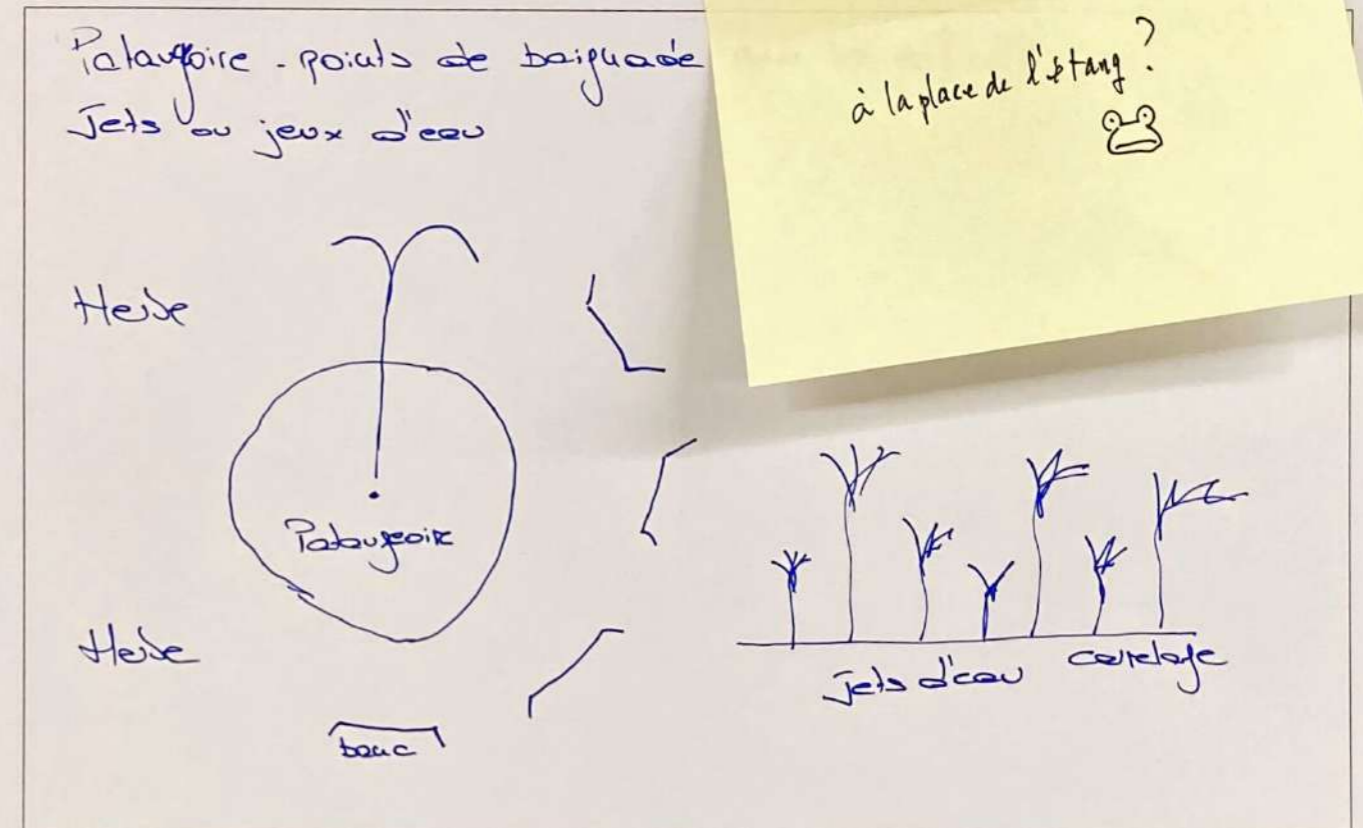 Pataugoire - points de baignade
Jets ou jeux d'eau
à la place de l'étang ?
Herbe
Pataugeoire
Herbe
Jets d'eau carrelage
banc